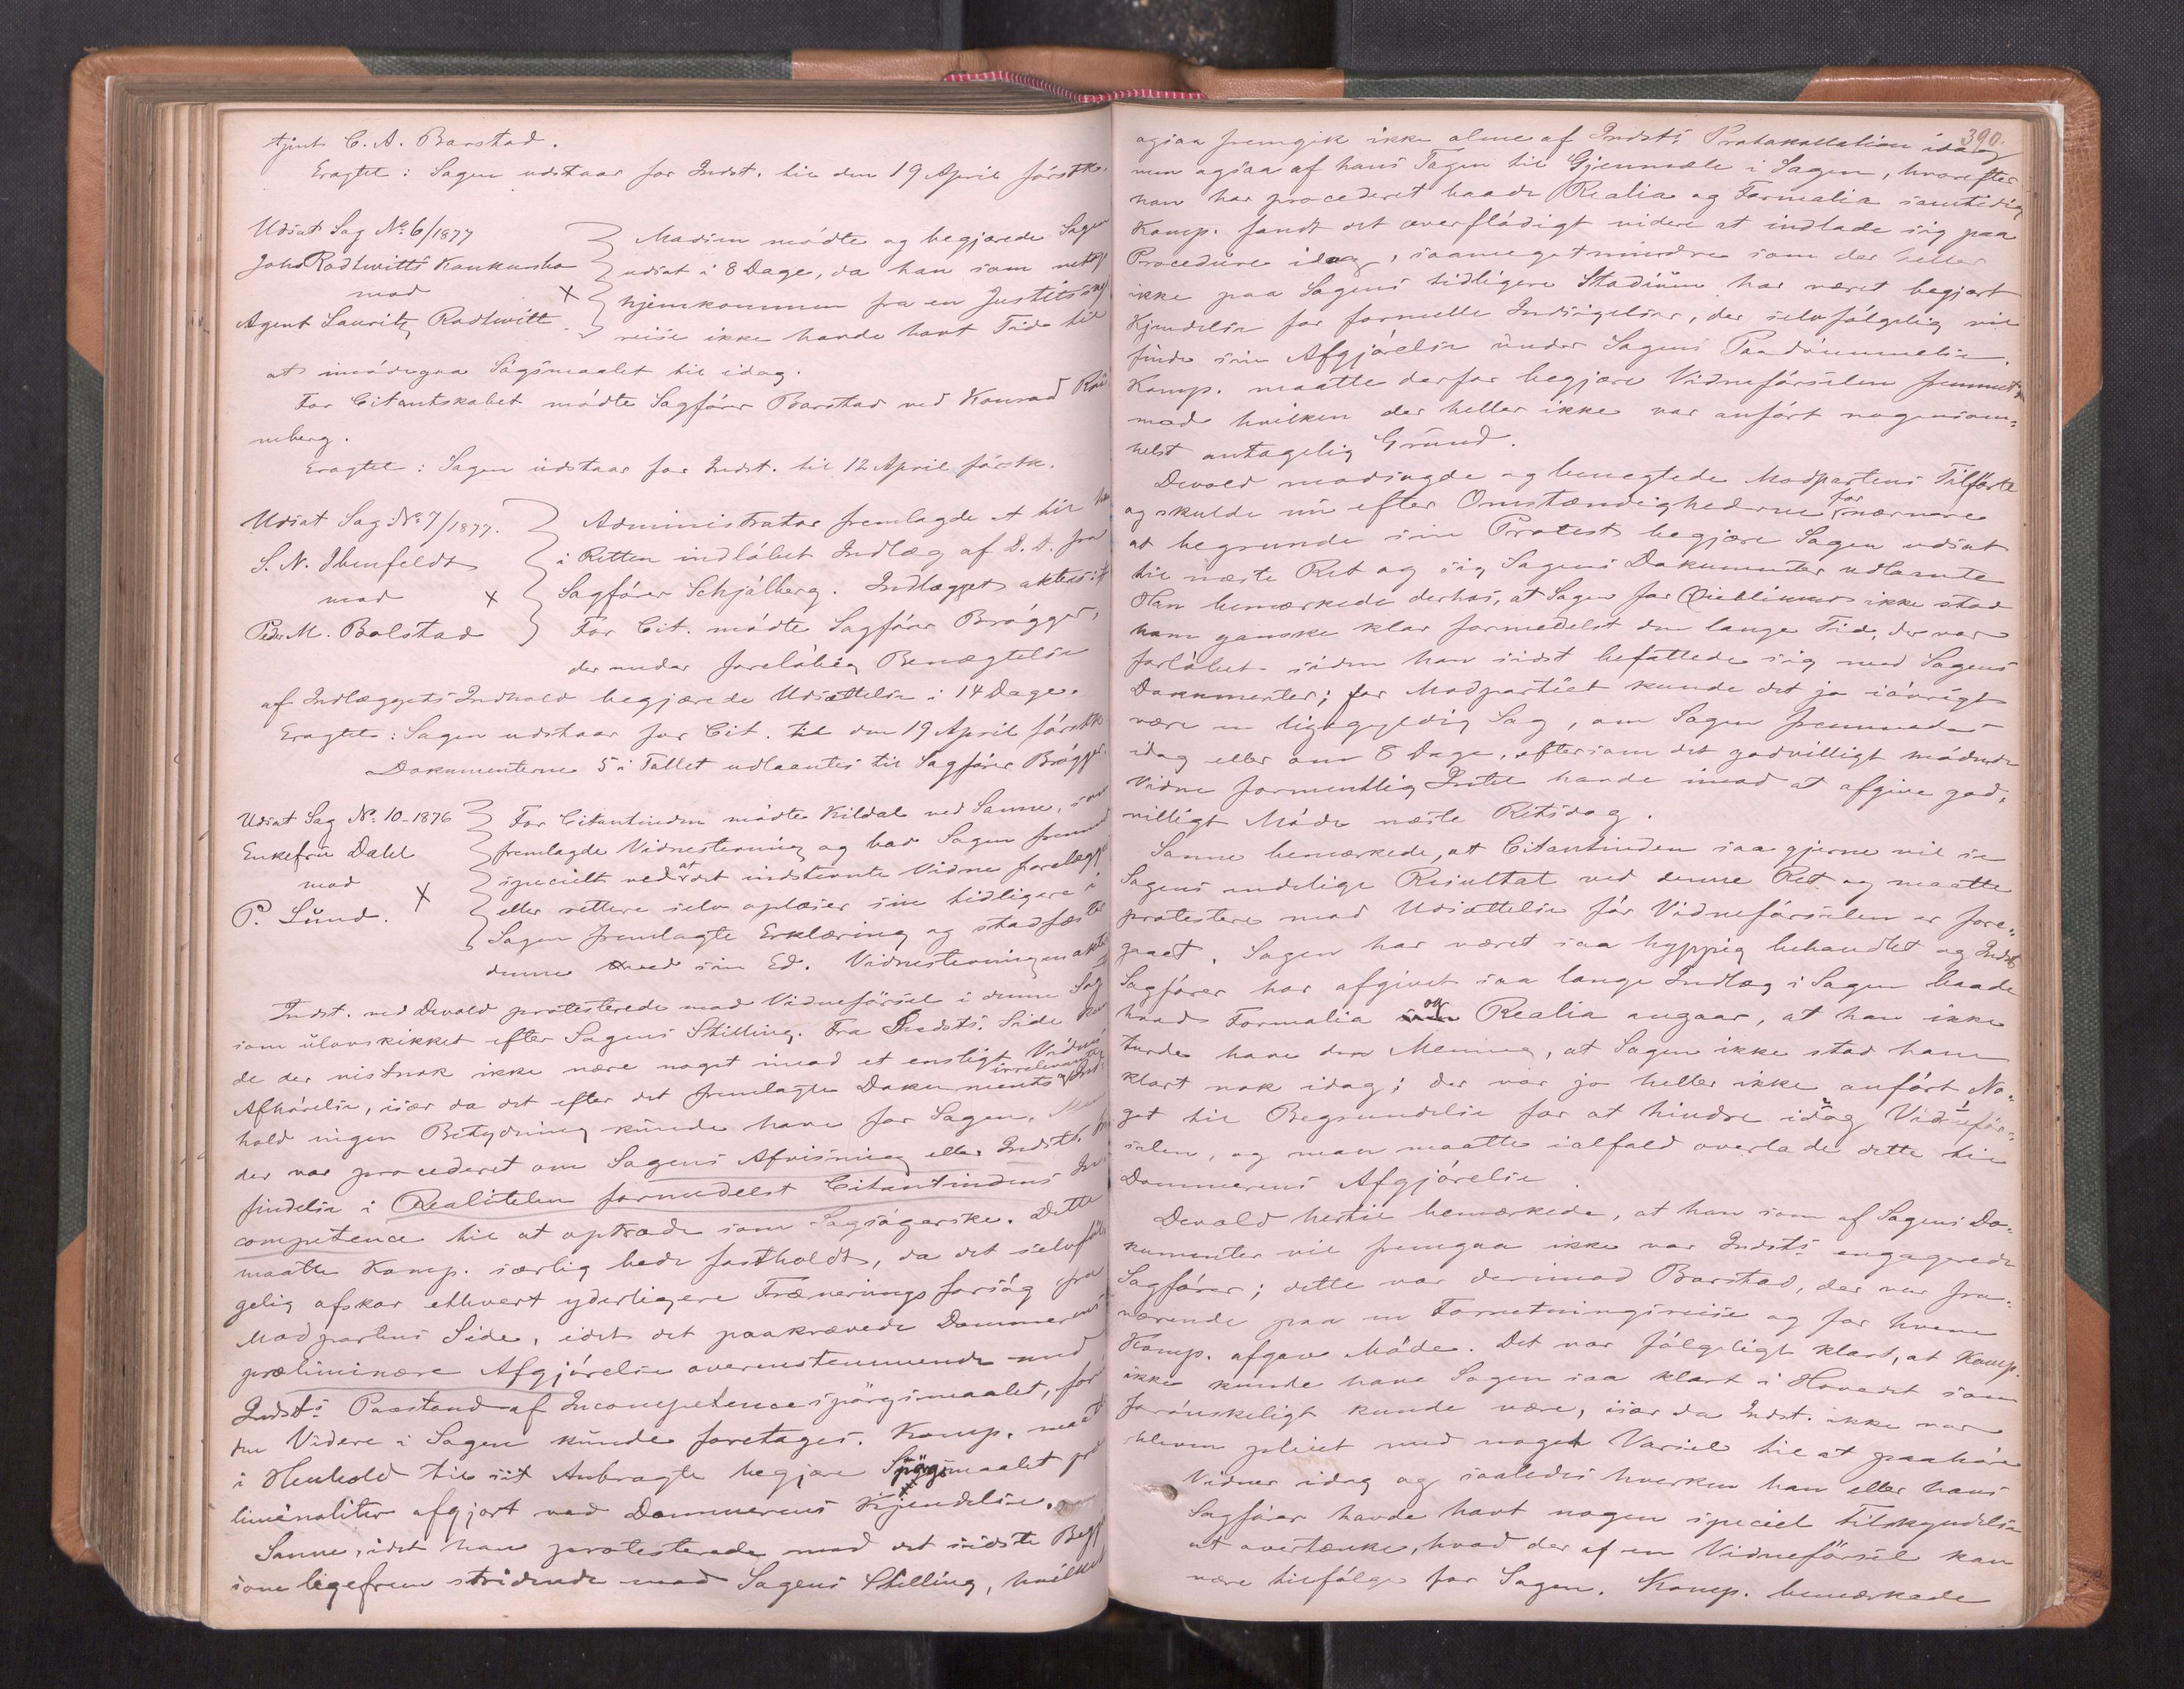 tjent C. A. Barstad.
Eragtet: Sagen udstaar for Indst. til den 19 April förstk.
Udsat Sag No 6/1877
Johs Rodtwitts Konkursbo
mod
Agent Lauritz Rodtwitt
Madsen mödte og begjærede Sagen
udsat i 8 Dage, da han som netop
hjemkommen fra en Justitssags
reise ikke havde havt Tid til
at imödegaa Sögsmaalet til idag.
For Citantskabet mödte Sagförer Barstad ved Konrad
neberg.
Eragtet: Sagen udstaar for Indst. til 12 April förstk.
Udsat Sag No 7/1877.
S. N. Ibenfeldt
mod
Peder M. Bolstad
Administrator fremlagde et til
i Retten indlöbet Indlæg af D. D. fra
Sagförer Schjölberg. Indlægget aktes
For Cit. mödte Sagförer Brögger,
der under foreløbig Benægtelse
af Indlæggets Indhold begjærede Udsættelse i 14 Dage.
Eragtet: Sagen udstaar for Cit. til den 19 April förstk
Dokumenterne 5 i Tallet udlaantes til Sagförer Brögger.
Udsat Sag No 10-1876
Enkefru Dahl
mod
P. Lund.
For Citantinden mödte Kildal ved Sanne, som
fremlagde Vidnestevning og bad Sagen fremmet
specielt ved at det indstevnte Vidne forelægges
eller rettere selv oplæser sin tidligere i
Sagen fremlagte Erklæring og stadfæster
denne med sin Ed. Vidnestevningen aktes
Indst. ved Devold protesterede mod Vidneförsel i denne Sag
som ulovskikket efter Sagens Stilling. Fra Indsts. Side kun
de der vistnok ikke være noget imod et ensligt Vidnes
Afhörelse, især da det efter det fremlagte Dokuments irrelevante Ind-
hold ingen Betydning kunde have for Sagen. Men
der var procederet om Sagens Afvisning eller Indsts. fri
findelse i Realiteten formedelst Citantindens In-
competence til at optræde som Sagsögerske. Dette
maatte Komp. særlig bede fastholdt, da det selvföl
gelig afskar ethvert yderligere Træneringsforsög fra
Modpartens Side, idet det paakrævede Dommerens
præliminære Afgjörelse overensstemmende med
Indsts. Paastand af Incompetencespörgsmaalet, för
den Videre i Sagen kunde foretages. Komp. maatte
i Henhold til sit Anbragte begjære Spörgsmaalet præ
liminaliter afgjort ved Dommerens Kjendelse.
Sanne, idet han protesterede mod det sidste
som ligefrem stridende mod Sagens Stilling, hvilket
390.
ogsaa fremgik ikke alene af Indsts. Protokollation idag
men ogsaa af hans Tagen til Gjenmæle i Sagen, hvorefter
han har procederet baade Realia og Formalia samtidig
Komp. fandt det overflödigt videre at indlade sig paa
Procedure idag, saameget mindre som der heller
ikke paa Sagens tidligere Stadium har været begjært
Kjendelse for formelle Indsigelser, der selvfölgelig vil
finde sin Afgjörelse under Sagens Paadömmelse.
Komp. maatte derfor begjære Vidneförselen fremmet,
mod hvilken der heller ikke var anfört nogensom-
helst antagelig Grund.
Devold modsagde og benegtede Modpartens Tilförte
og skulde nu efter Omstændighederne for nærmere
at begrunde sin Protest begjære Sagen udsat
til næste Ret og sig Sagens Dokumenter udlaante
Han bemærkede derhos, at Sagen for Öieblikket ikke stod
ham ganske klar formedelst den lange Tid, der var
forlöbet siden han sidst befattede sig med Sagens
Dokumenter; for Modpartiet kunde det jo iövrigt
være en ligegyldig Sag, om Sagen fremmedes
idag eller om 8 Dage, eftersom det godvilligt mödende
Vidne formentlig Intet havde imod at afgive god-
villigt Möde næste Retsdag.
Sanne bemærkede, at Citantinden saa gjerne vil se
Sagens endelige Resultat ved denne Ret og maatte
protestere mod Udsættelse för Vidneförselen er fore-
gaaet. Sagen har været saa hyppig behandlet og Indsts
Sagförer har afgivet saa lange Indlæg i Sagen baade
hvad Formalia og Realia angaar, at han ikke
turde have den Mening, at Sagen ikke stod ham
klart nok idag; der var jo heller ikke anfört No-
get til Begrundelse for at hindre idag Vidneför-
selen, og man maatte ialfald overlade dette til
Dommerens Afgjörelse.
Devold hertil bemærkede, at han som af Sagens Do-
kumenter vil fremgaa ikke var Indsts. engagerede
Sagförer; dette var derimod Barstad, der var fra-
værende paa en Forretningsreise og for hvem
Komp. afgav Möde. Det var fölgeligt klart, at Komp.
ikke kunde have Sagen saa klart i Hovedet som
forönskeligt kunde være, især da Indst. ikke var
bleven pliet med noget Varsel til at paahöre
Vidner idag og saaledes hverken han eller hans
Sagförer havde havt nogen speciel Tilskyndelse
at overtænke, hvad der af en Vidneförsel kan
være tilfölge for Sagen. Komp. bemærkede